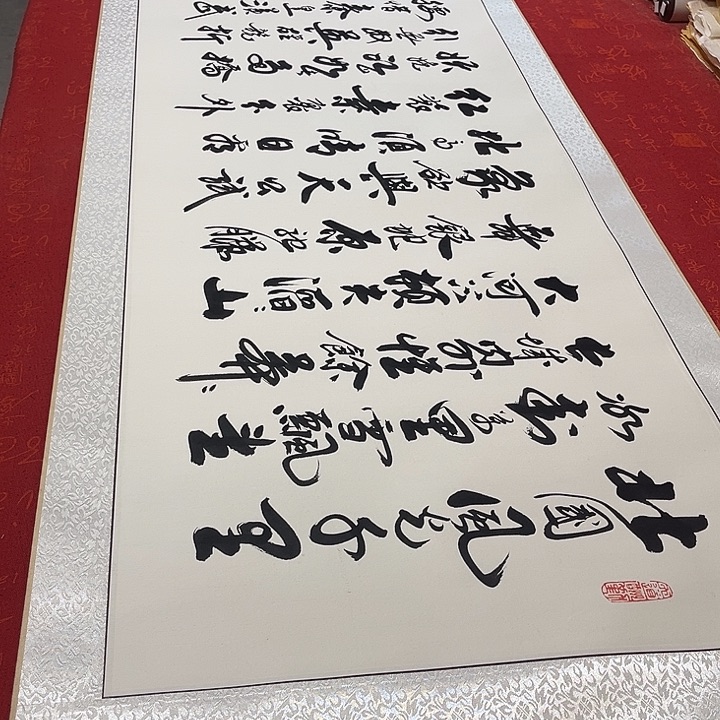 北國風光千里
冰封萬里雪飄望
長城內外惟餘莽莽
大河上下頓失滔滔山
舞銀蛇原馳臘
象欲與天公試
比高須晴日看
紅裝素裹分外
妖嬈江山如此多嬌
引無數英雄競折
腰惜秦皇漢武